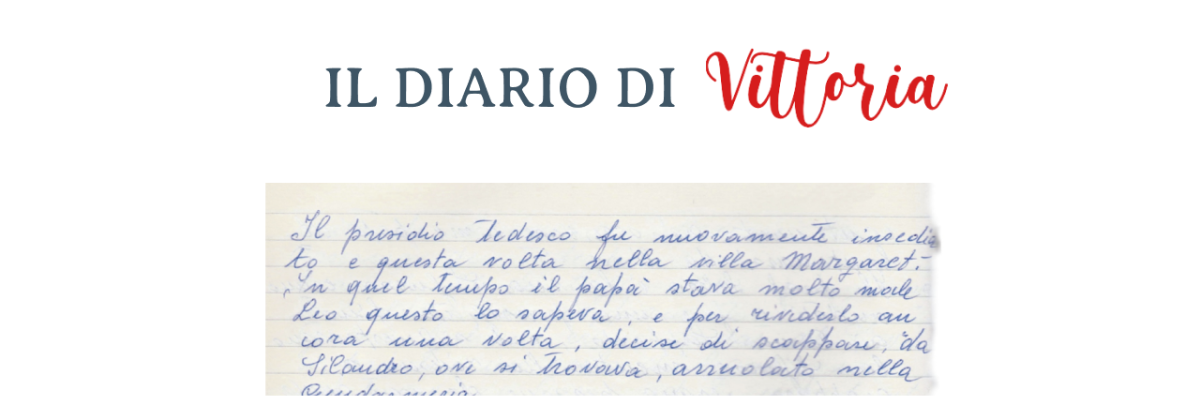 IL DIARIO DI Vittoria
Il presidio tedesco fu nuovamente insedia
to e questa volta nella villa Margaret.-
In quel tempo il papà stava molto male
Leo questo lo sapeva, e per rivederlo an
cora una volta, decise di scappare, da
Silandro, ove si trovava, arruolato nella
Gendarmeria